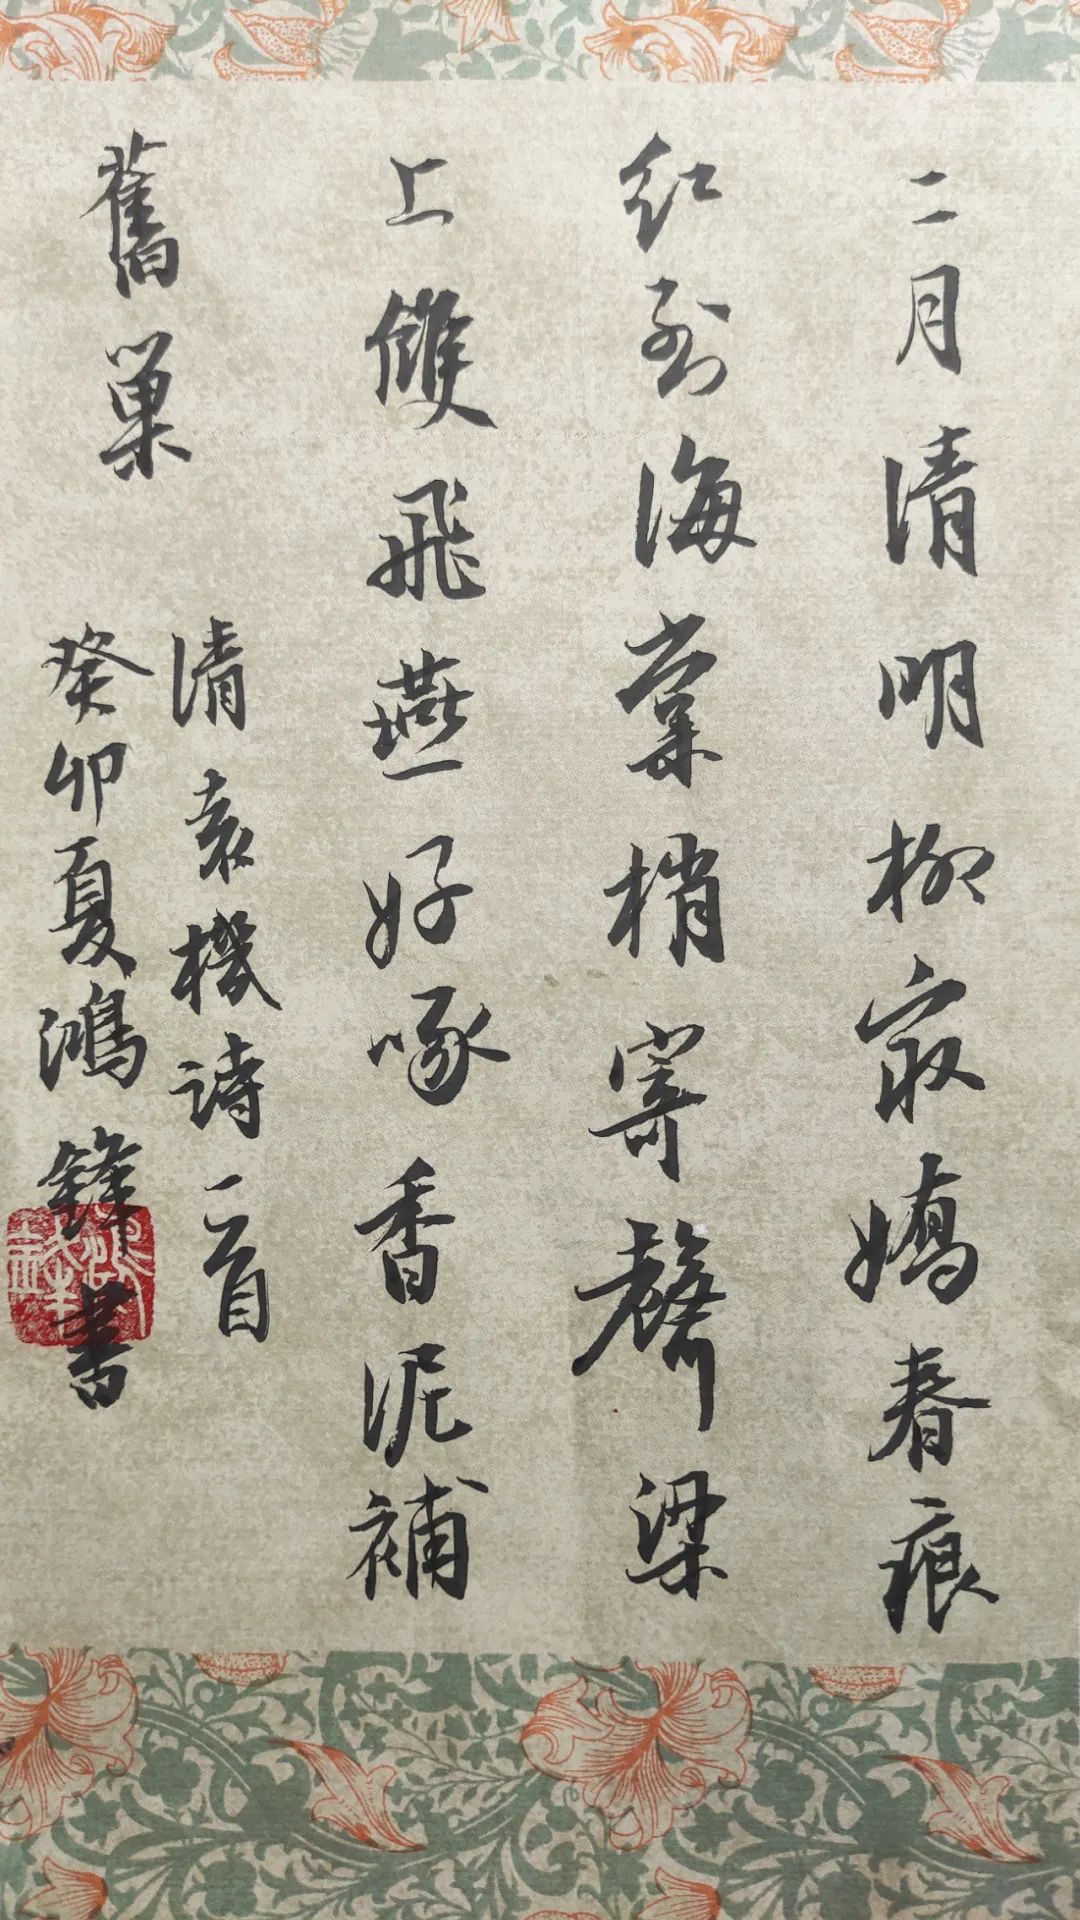 二月清明柳最嬌春痕
紅到海棠梢寄聲梁
上雙飛燕好啄香泥補
舊巢
清袁機詩一首
癸卯夏鴻鋒書